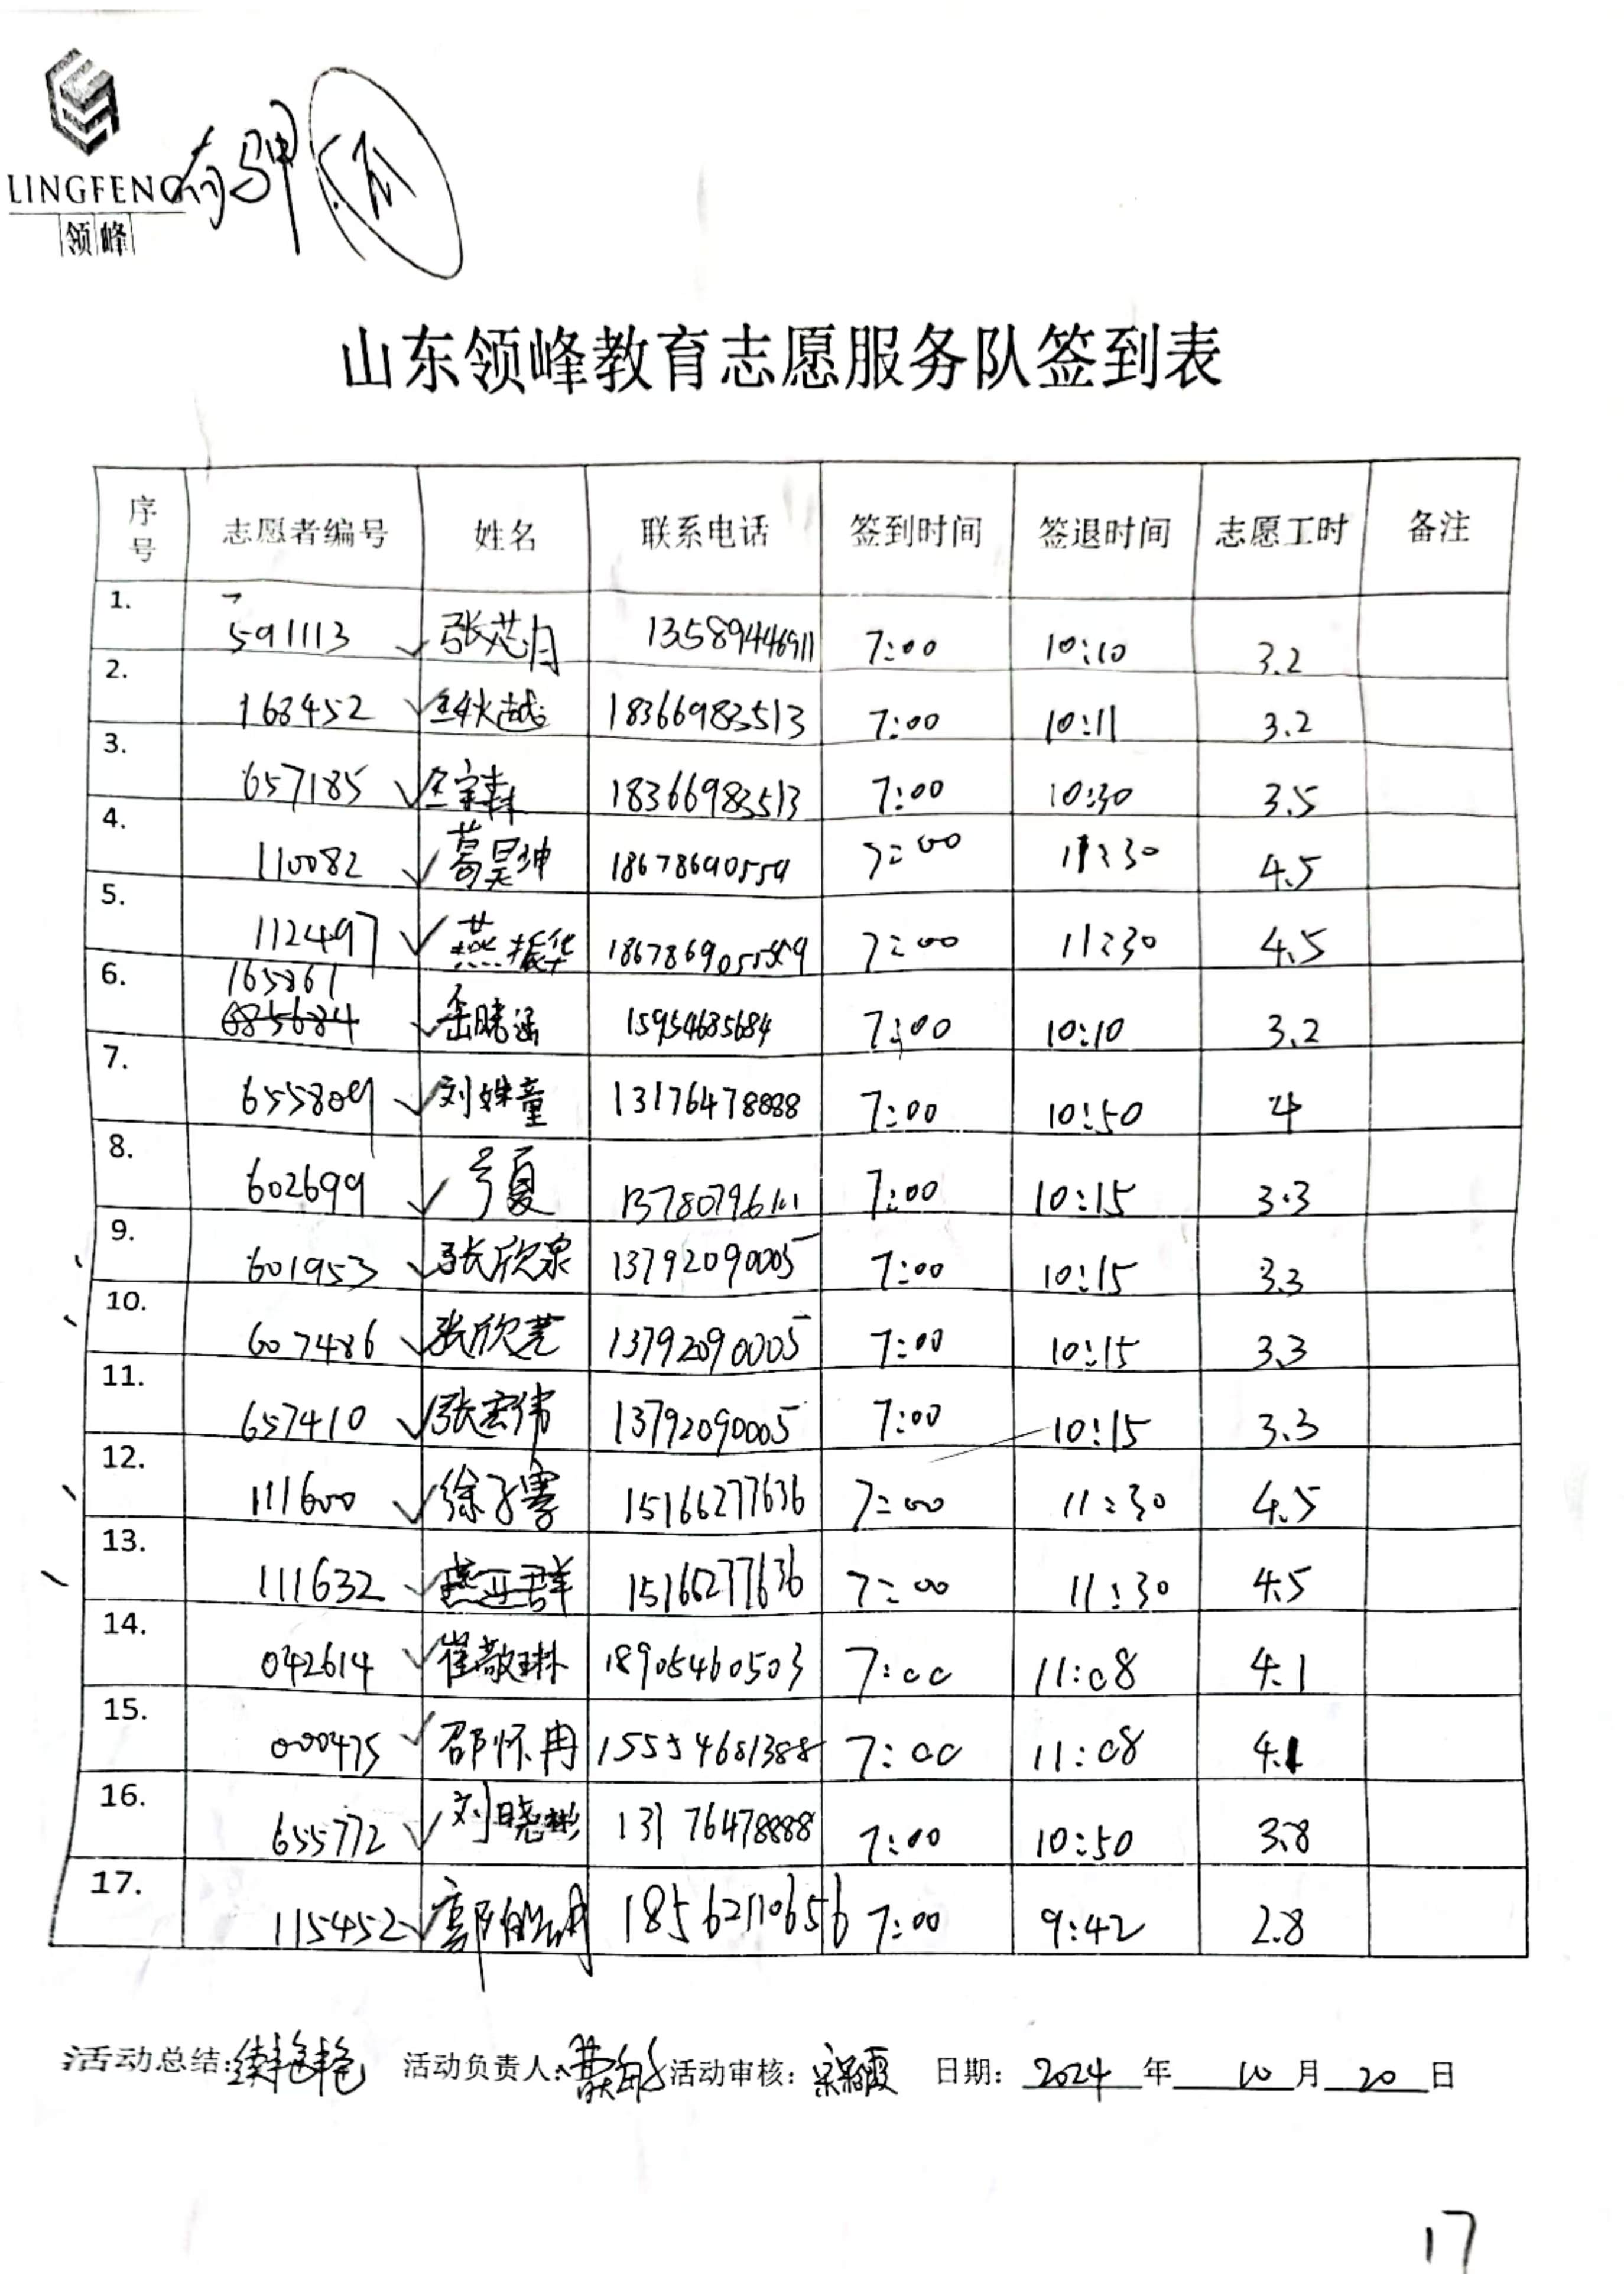 LINGFENG
领峰
山东领峰教育志愿服务队签到表
序号 志愿者编号 姓名 联系电话 签到时间 签退时间 志愿工时 备注
1. 591113 张芯月 13589446911 7:00 10:10 3.2
2. 168452 王秋越 18366983513 7:00 10:11 3.2
3. 657185 王宇森 18366983513 7:00 10:30 3.5
4. 110082 葛昊坤 18678690559 7:00 11:30 4.5
5. 112497 燕振华 7:00 11:30 4.5
6. 165861 岳晴涵 15954685684 7:00 10:10 3.2
7. 655809 刘姝童 13176478888 7:00 10:50 4
8. 602699 夏 13780796111 7:00 10:15 3.3
9. 601953 张欣泉 13792090005 7:00 10:15 3.3
10. 607486 张欣艺 13792090005 7:00 10:15 3.3
11. 657410 张宏伟 13792090005 7:00 10:15 3.3
12. 111600 徐子骞 15166277636 7:00 11:30 4.5
13. 111632 燕亚群 15166277636 7:00 11:30 4.5
14. 042614 崔敬琳 18905460503 7:00 11:08 4.1
15. 000475 邵怀冉 15554681388 7:00 11:08 4.1
16. 655772 刘晓彬 13176478888 7:00 10:50 3.8
17. 115452 18562110656 7:00 9:42 2.8
活动总结: 活动负责人: 活动审核: 日期: 2024 年 10 月 20 日
17